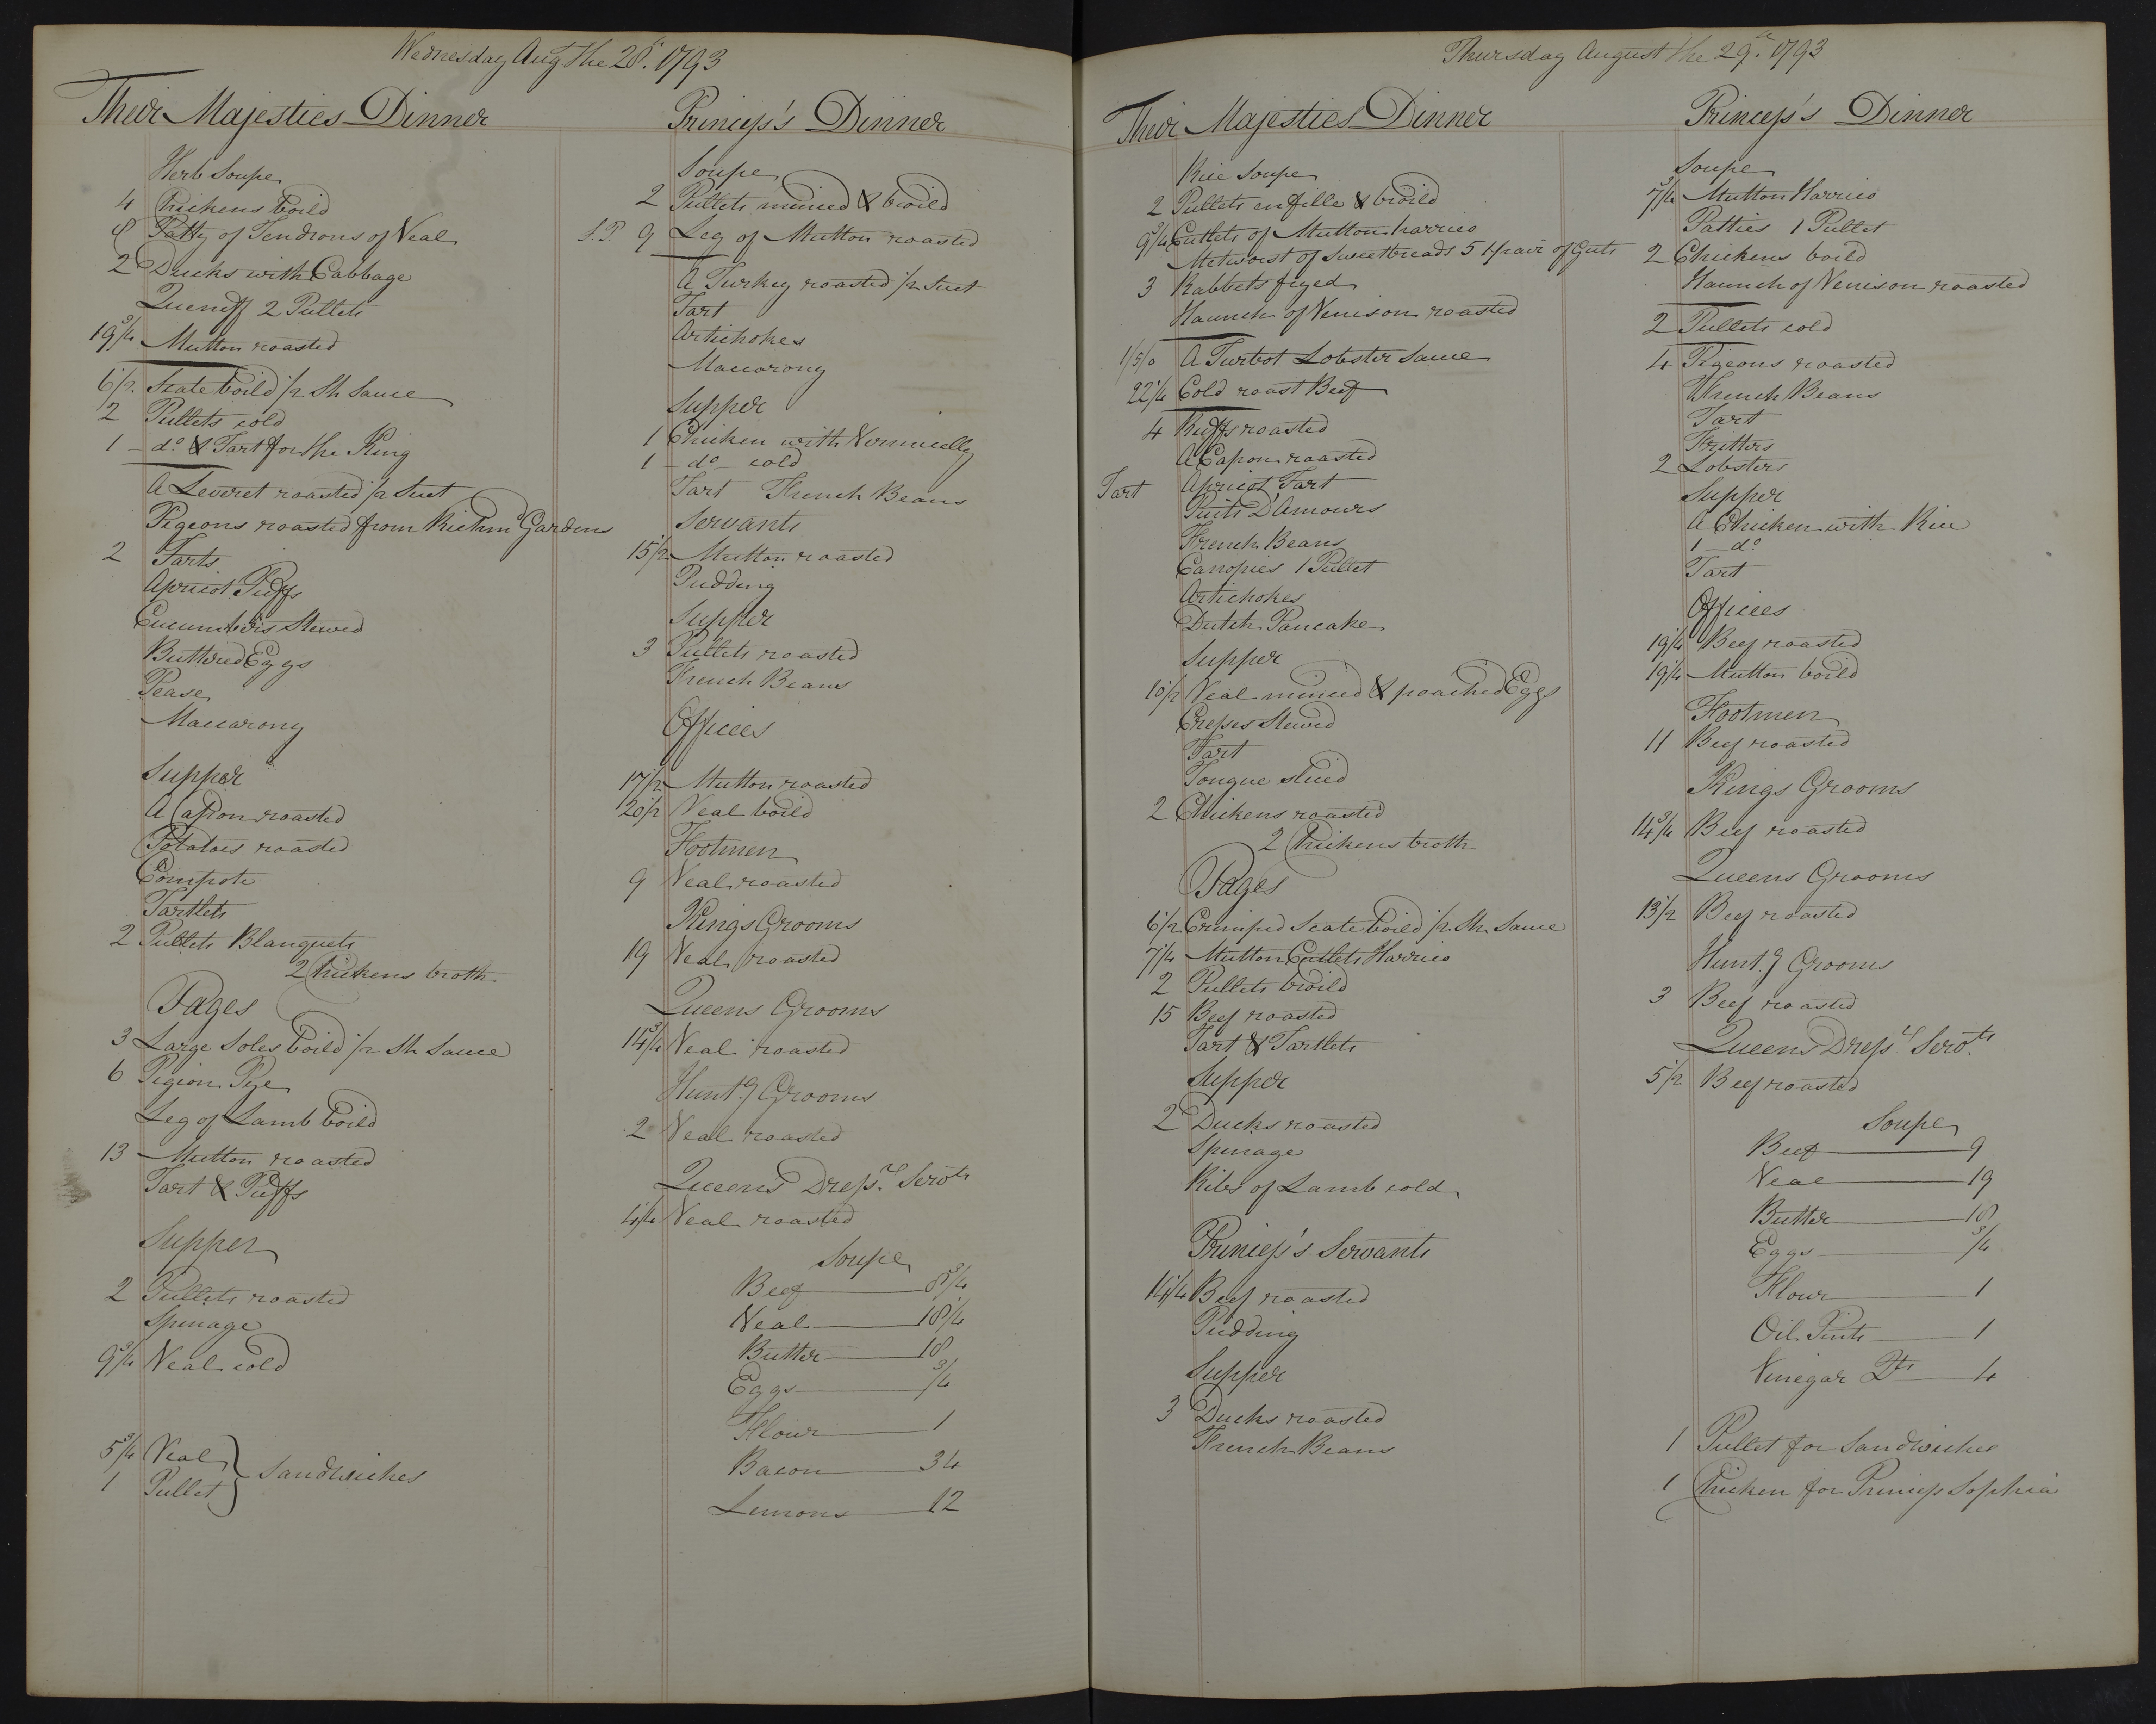 Wednesday Aug the 28th. 1793
Their Majesties Dinner
Herb Soupe
4 Chickens boild
8 Patty of Tendrons of Veal
2 Ducks with Cabbage
Queneff 2 Pullets
19 3/4 Mutton roasted
6 1/2 Scate boild 1/2 Sh Sauce
2 Pullets cold
1 - do. & Tart for the King
A Leveret roasted 1/2 Suet
Pigeons roasted from Richmd Gardens
2 Tarts
Apricot Puffs
Cucumbers Stewed
Butterd Eggs
Pease
Maccarony
Supper
A Capon roasted
Potatoes roasted
Compote
Tartlets
2 Pullets Blanquets
2 Chickens broth
Pages
3 Large Soles boild 1/2 Sh Sauce
6 Pigion Pye
Leg of Lamb boild
13 Mutton roasted
Tart & Puffs
Supper
2 Pullets roasted
Spinage
9 3/4 Veal cold
5 3/4 Veal
1 Pullet } Sandwiches
Princess's Dinner
Soupe
2 Pullets minced & broild
S.P. 9 Leg of Mutton roasted
A Turkey roasted 1/2 Suet
Tart
Artichokes
Maccarony
Supper
1 Chicken with Vermicelly
1 - do - cold
Tart French Beans
Servants
15 1/2 Mutton roasted
Pudding
Supper
3 Pullets roasted
French Beans
Offices
17 1/2 Mutton roasted
20 1/2 Veal boild
Footmen
9 Veal roasted
Kings Grooms
19 Veal roasted
Queens Grooms
14 3/4 Veal roasted
Hunt.g Grooms
2 Veal roasted
Queens Dress.rs Servts
4 1/4 Veal roasted
Soupe
Beef 8 3/4
Veal 18 1/4
Butter 18
Eggs 3/4
Flour 1
Bacon 34
Lemons 12
Thursday August the 29th. 1793
Their Majesties Dinner
Rice Soupe
2 Pullets en fille & broild
9 3/4 Cutlets of Mutton harrico
Metworst of Sweetbreads 5 1 pair of Guts
3 Rabbets fryed
Haunch of Venison roasted
1/5/0 A Turbot Lobster Sauce
22 1/4 Cold roast Beef
4 Ruffs roasted
A Capon roasted
Tart Apricot Tart
Puits D'Amours
French Beans
Canopies 1 Pullet
Artichokes
Dutch Pancake
Supper
10 1/2 Veal minced & poached Eggs
Cresses Stewed
Tart
Tongue sliced
2 Chickens roasted
2 Chickens broth
Pages
6 1/2 Crimped Scate boild 1/2 Sh Sauce
7 1/4 Mutton Cutlets Harrico
2 Pullets broild
15 Beef roasted
Tart & Tartlets
Supper
2 Ducks roasted
Spinage
Ribs of Lamb cold
Princess's Servants
14 1/4 Beef roasted
Pudding
Supper
3 Ducks roasted
French Beans
Princess's Dinner
Soupe
7 3/4 Mutton Harrico
Patties 1 Pullet
2 Chickens boild
Haunch of Venison roasted
2 Pullets cold
4 Pigeons roasted
French Beans
Tart
Fritters
2 Lobsters
Supper
A Chicken with Rice
1 - do.
Tart
Offices
19 1/4 Beef roasted
19 1/4 Mutton boild
Footmen
11 Beef roasted
Kings Grooms
14 3/4 Beef roasted
Queens Grooms
13 1/2 Beef roasted
Hunt.g Grooms
3 Beef roasted
Queens Dress.rs Servts
5 1/2 Beef roasted
Soupe
Beef 9
Veal 19
Butter 18
Eggs 3/4
Flour 1
Oil Pints 1
Vinegar Dts 4
1 Pullet for Sandwiches
1 Chicken for Princess Sophia